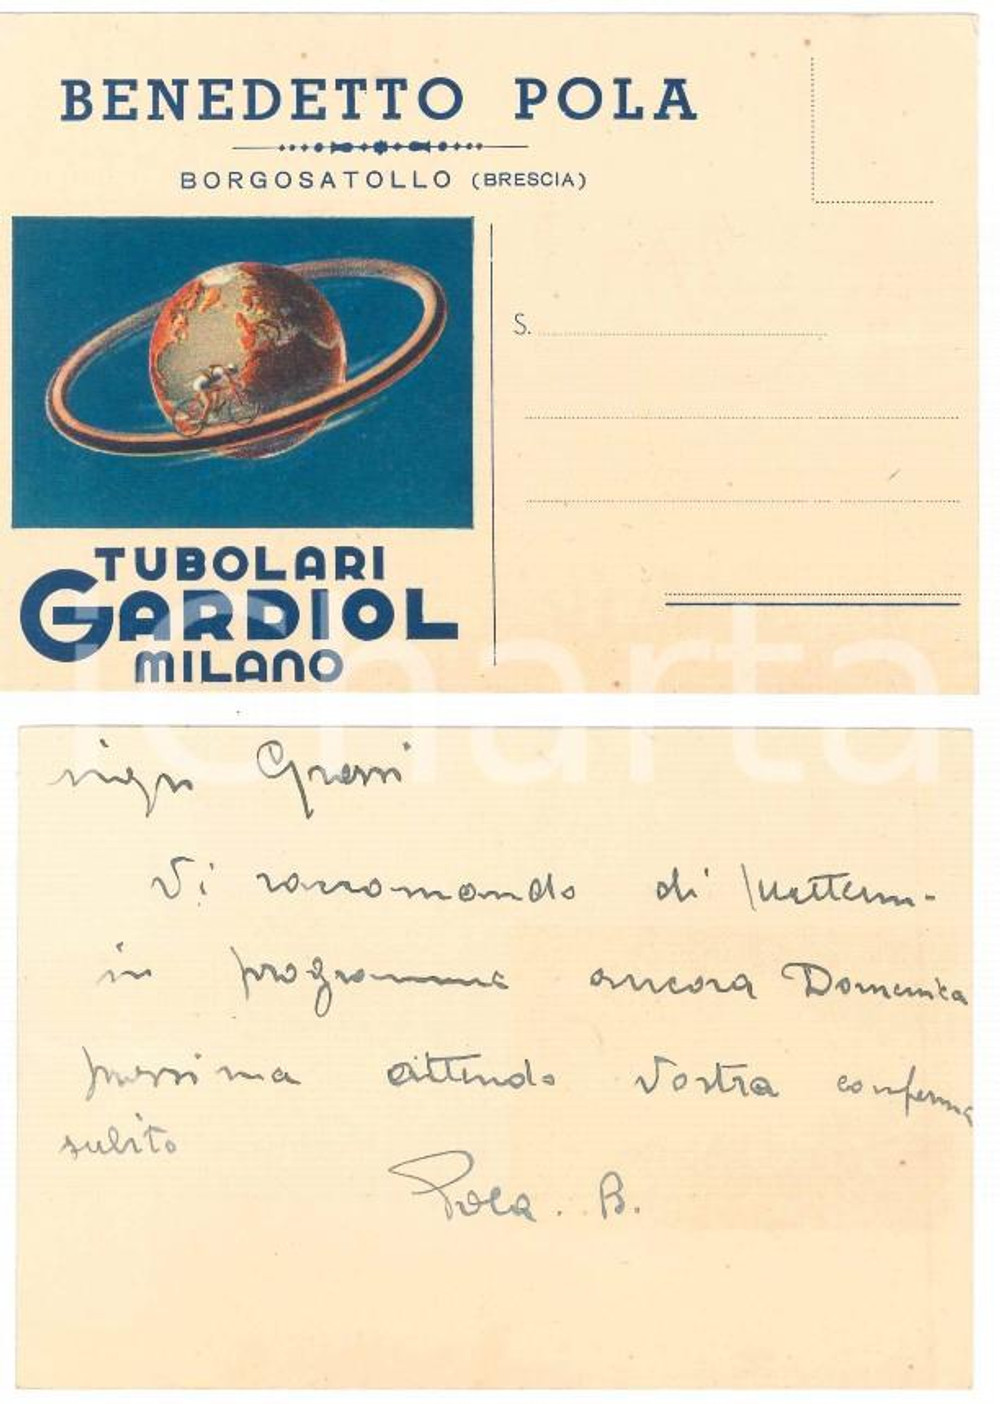 BENEDETTO POLA
BORGOSATOLLO (BRESCIA)
S.
TUBOLARI
GARDIOL
MILANO
iCharta
sign Grassi
Vi raccomando di metterm-
in programma ancora Domenica
prossima attendo Vostra conferma
subito
Pola. B.